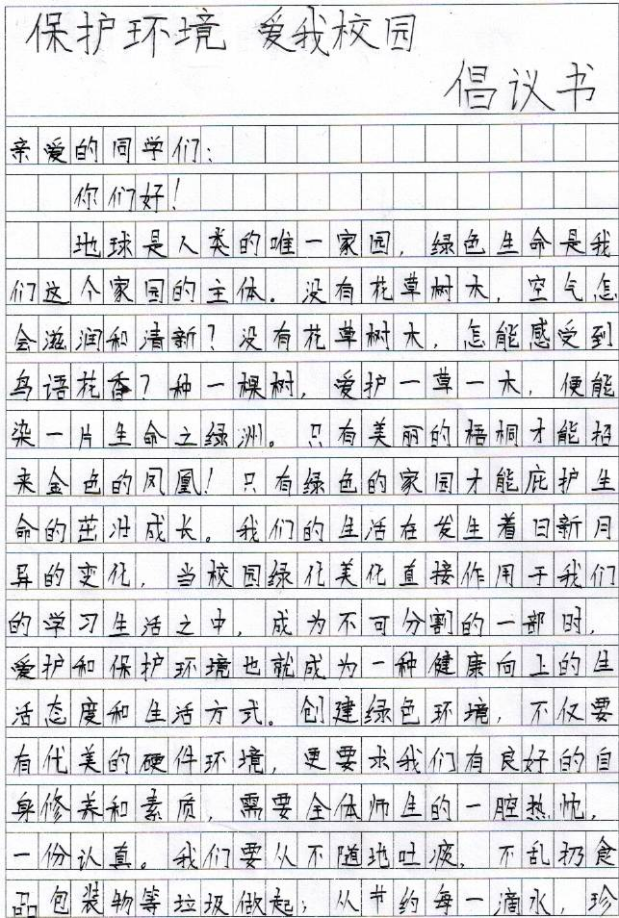 保护环境 爱我校园
倡议书
亲爱的同学们：
你们好！
地球是人类的唯一家园，绿色生命是我
们这个家园的主体。没有花草树木，空气怎
会滋润和清新？没有花草树木，怎能感受到
鸟语花香？种一棵树，爱护一草一木，便能
染一片生命之绿洲。只有美丽的梧桐才能招
来金色的凤凰！只有绿色的家园才能庇护生
命的茁壮成长。我们的生活在发生着日新月
异的变化，当校园绿化美化直接作用于我们
的学习生活之中，成为不可分割的一部时，
爱护和保护环境也就成为一种健康向上的生
活态度和生活方式。创建绿色环境，不仅要
有代美的硬件环境，更要求我们有良好的自
身修养和素质，需要全体师生的一腔热忱，
一份认真。我们要从不随地吐痰，不乱扔食
品包装物等垃圾做起；从节约每一滴水，珍